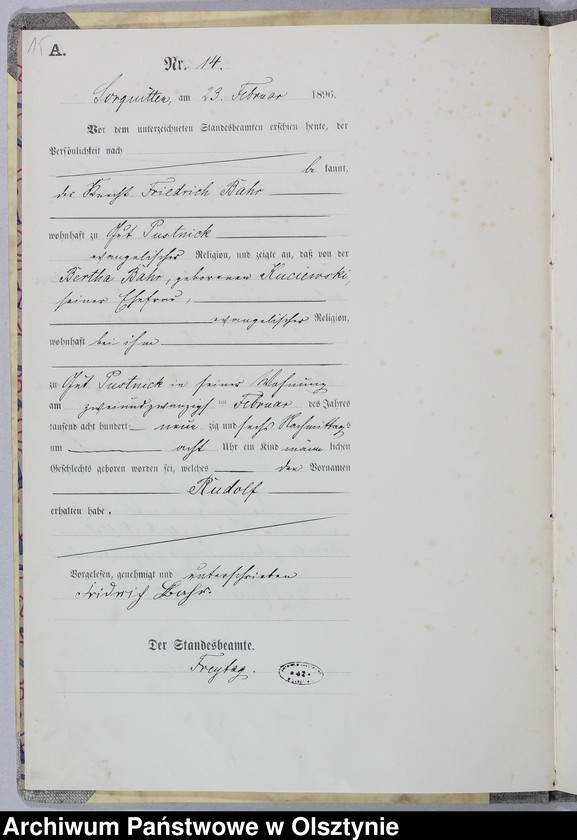 15
A.
Nr. 14.
Sorquitten, am 23. Februar 1896.
Vor dem unterzeichneten Standesbeamten erschien heute, der
Persönlichkeit nach
be kannt,
der Knecht Friedrich Bahr
wohnhaft zu Gut Pustnick
evangelischer Religion, und zeigte an, daß von der
Bertha Bahr, geborenen Kuciewski,
seiner Ehefrau,
evangelischer Religion,
wohnhaft bei ihm
zu Gut Pustnick in seiner Wohnung
am zweiundzwanzigs ten Februar des Jahres
tausend acht hundert neun zig und sechs Nachmittags
um acht Uhr ein Kind männ lichen
Geschlechts geboren worden sei, welches den Vornamen
Rudolf
erhalten habe.
Vorgelesen, genehmigt und unterschrieben
Fridrich Bahr.
Der Standesbeamte.
Freytag.
*42*
Archiwum Państwowe w Olsztynie